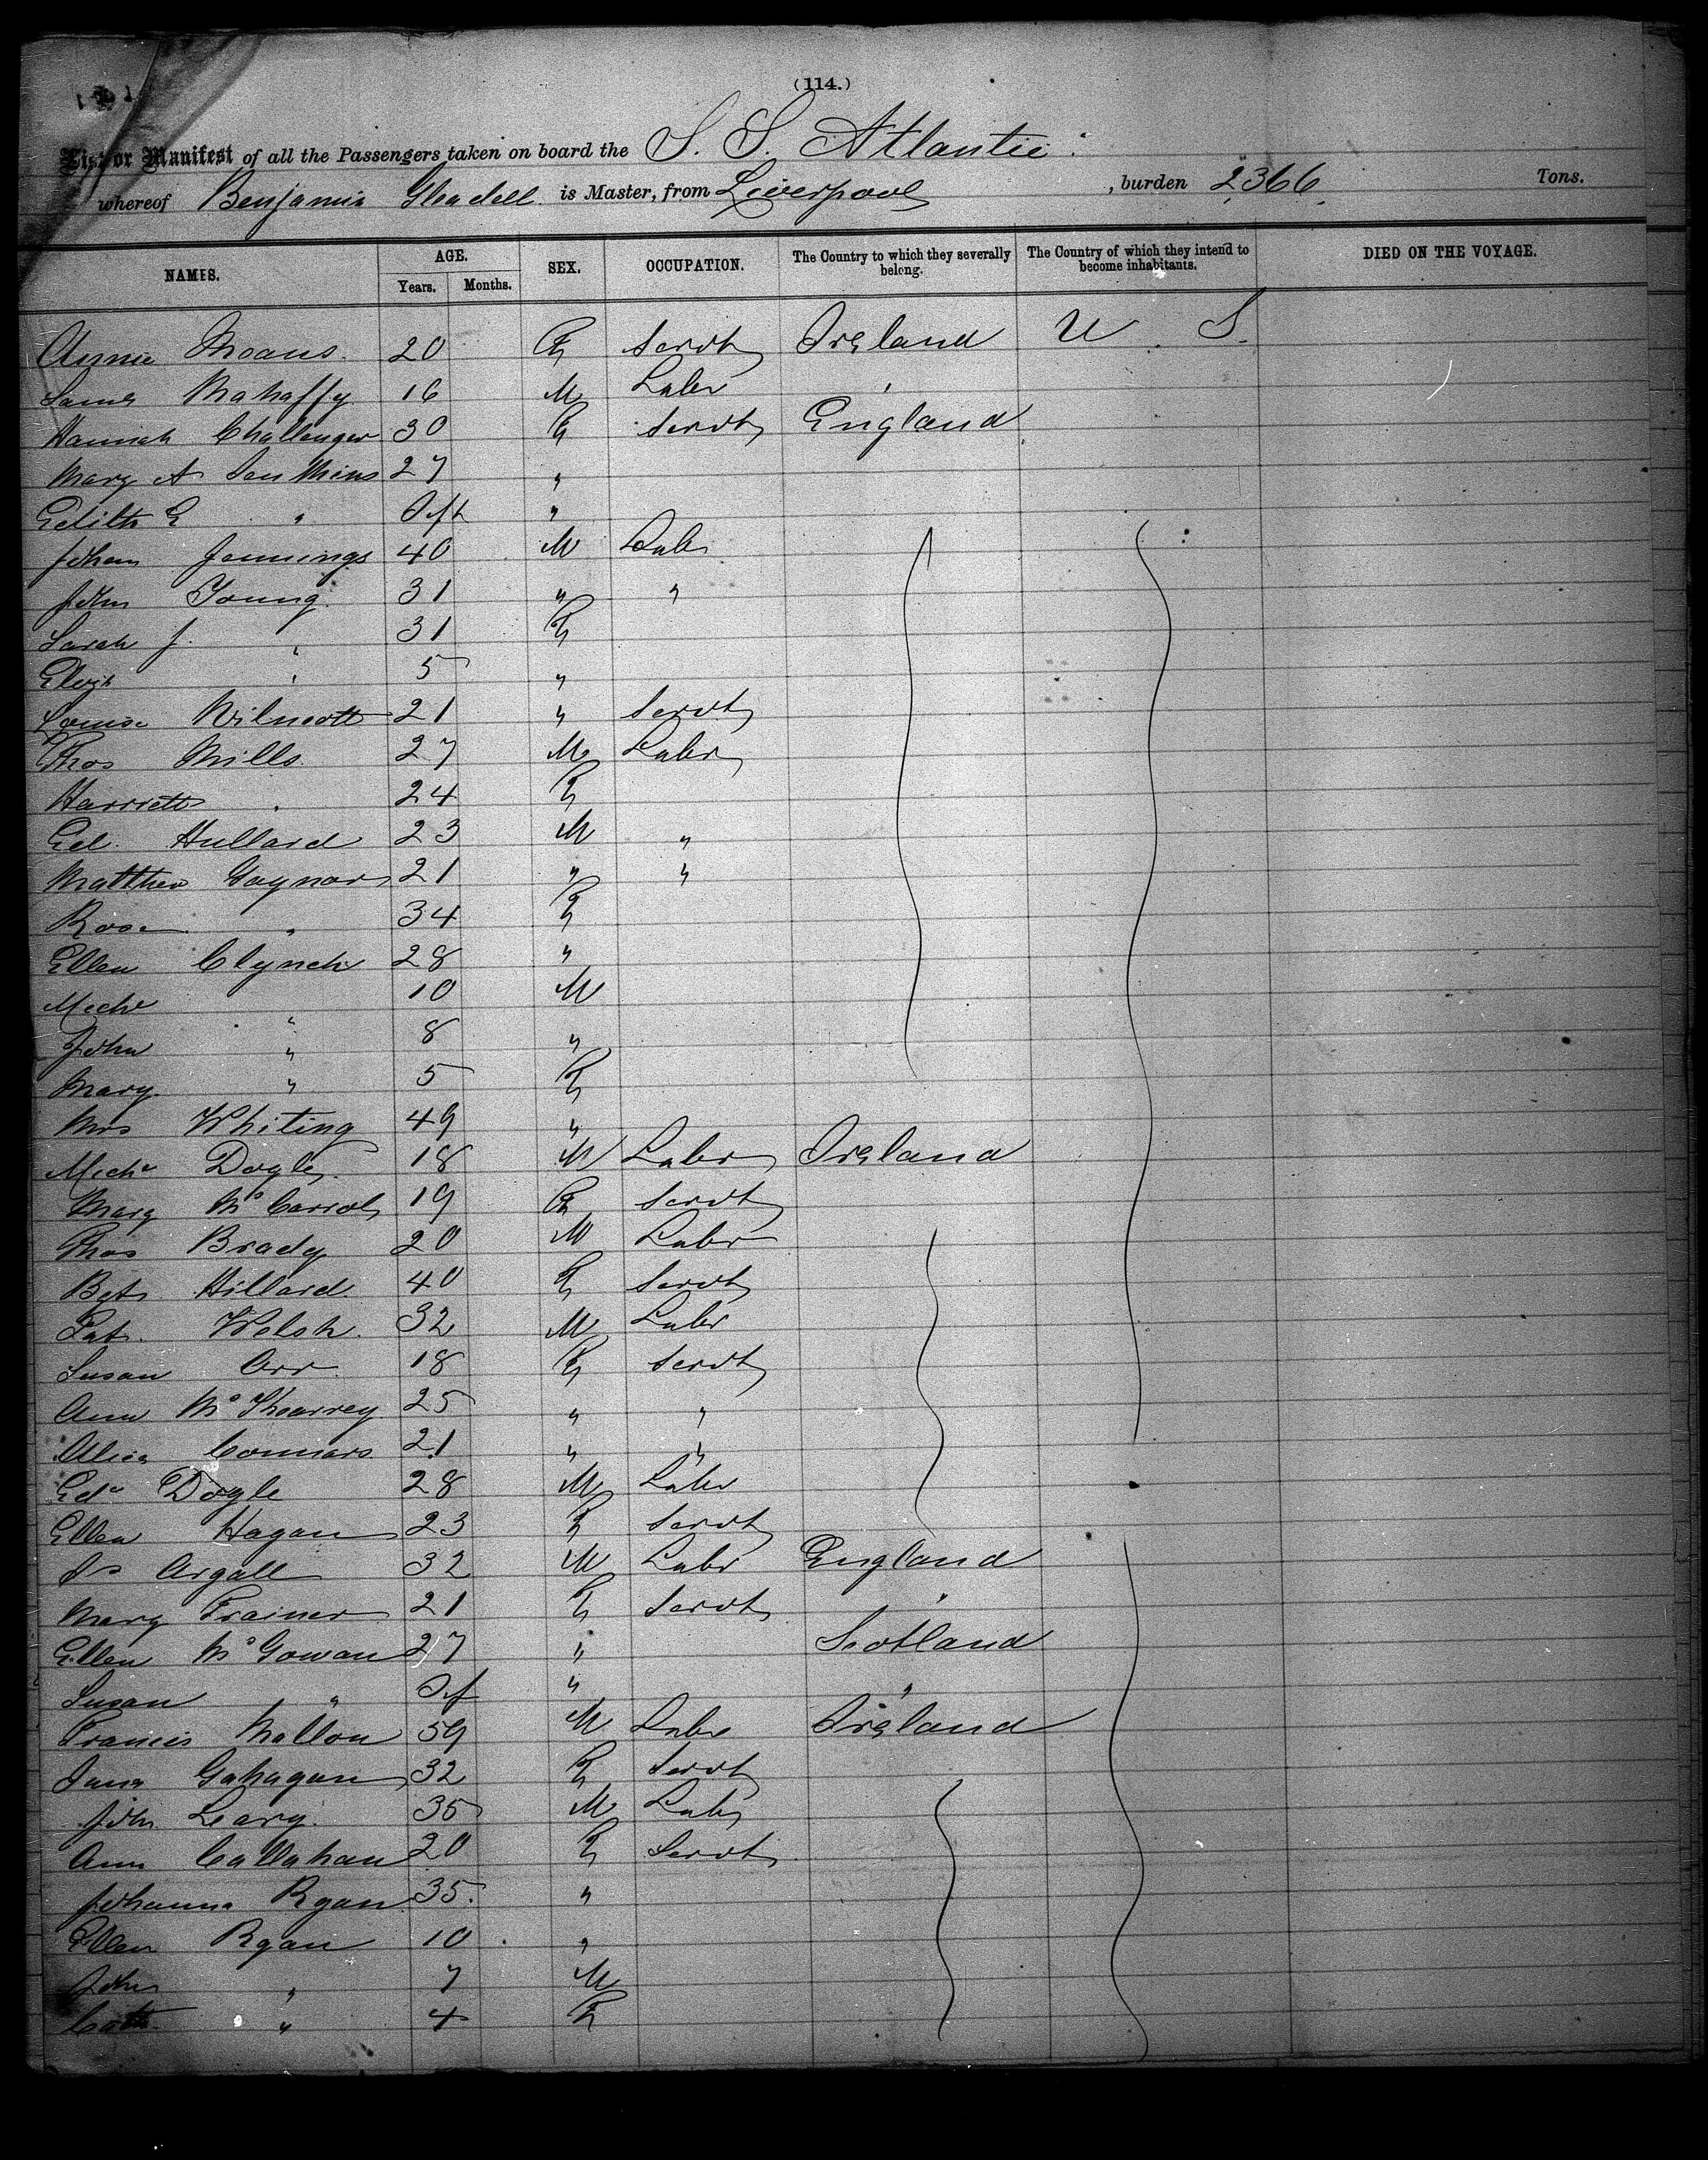 (114.)
List or Manifest of all the Passengers taken on board the S. S. Atlantic
whereof Benjamin Gleadell is Master, from Liverpool, burden 2366 Tons.
NAMES. AGE. Years. Months. SEX. OCCUPATION. The Country to which they severally belong. The Country of which they intend to become inhabitants. DIED ON THE VOYAGE.
Annie Moans 20 F Servt Ireland U S.
James Mahaffy 16 M Labr "
Hannah Challenger 30 F Servt England
Mary A Jenkins 27 "
Edith E " Inft "
John Jennings 40 M Labr
John Young 31 " "
Sarah J. " 31 F
" 5 "
Louisa Wilmott 21 " Servt
Thos Mills 27 M Labr
Harriett " 24 F
Ed. Hullard 23 M "
Matthew Gaynor 21 " "
Rose " 34 F
Ellen Clynch 28 "
Michl " 10 M
John " 8 "
Mary " 5 F
Mrs Whiting 49 "
Michl Doyle 18 M Labr Ireland
Mary McCarrol 19 F Servt
Thos Brady 20 M Labr
Bgt Hillard 40 F Servt
Pat. Welsh 32 M Labr
Susan Orr 18 F Servt
Ann 25 " "
Alice Connors 21 " "
Edw Doyle 28 M Labr
Ellen Hagan 23 F Servt
Js Argall 32 M Labr England
Mary Trainer 21 F Servt "
Ellen McGowan 27 " Scotland
Susan " Inf " "
Francis Mallon 59 M Labr Ireland
Jane Gahagan 32 F Servt
John Leary 35 M Labr
Ann Callahan 20 F Servt
Johanna Ryan 35 "
Ellen Ryan 10 "
John " 7 M
Cath " 4 F